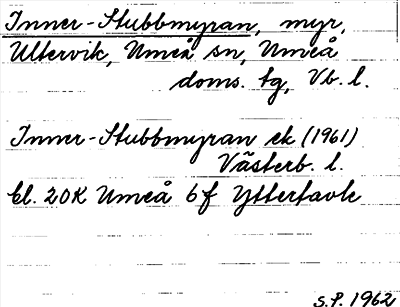 Inner-Stubbmyran, myr,
Ultervik, Umeå sn, Umeå
doms. tg, Vb. l.
Inner-Stubbmyran ek (1961)
Västerb. l.
bl. 20K Umeå 6f Yttertavle
S.P. 1962